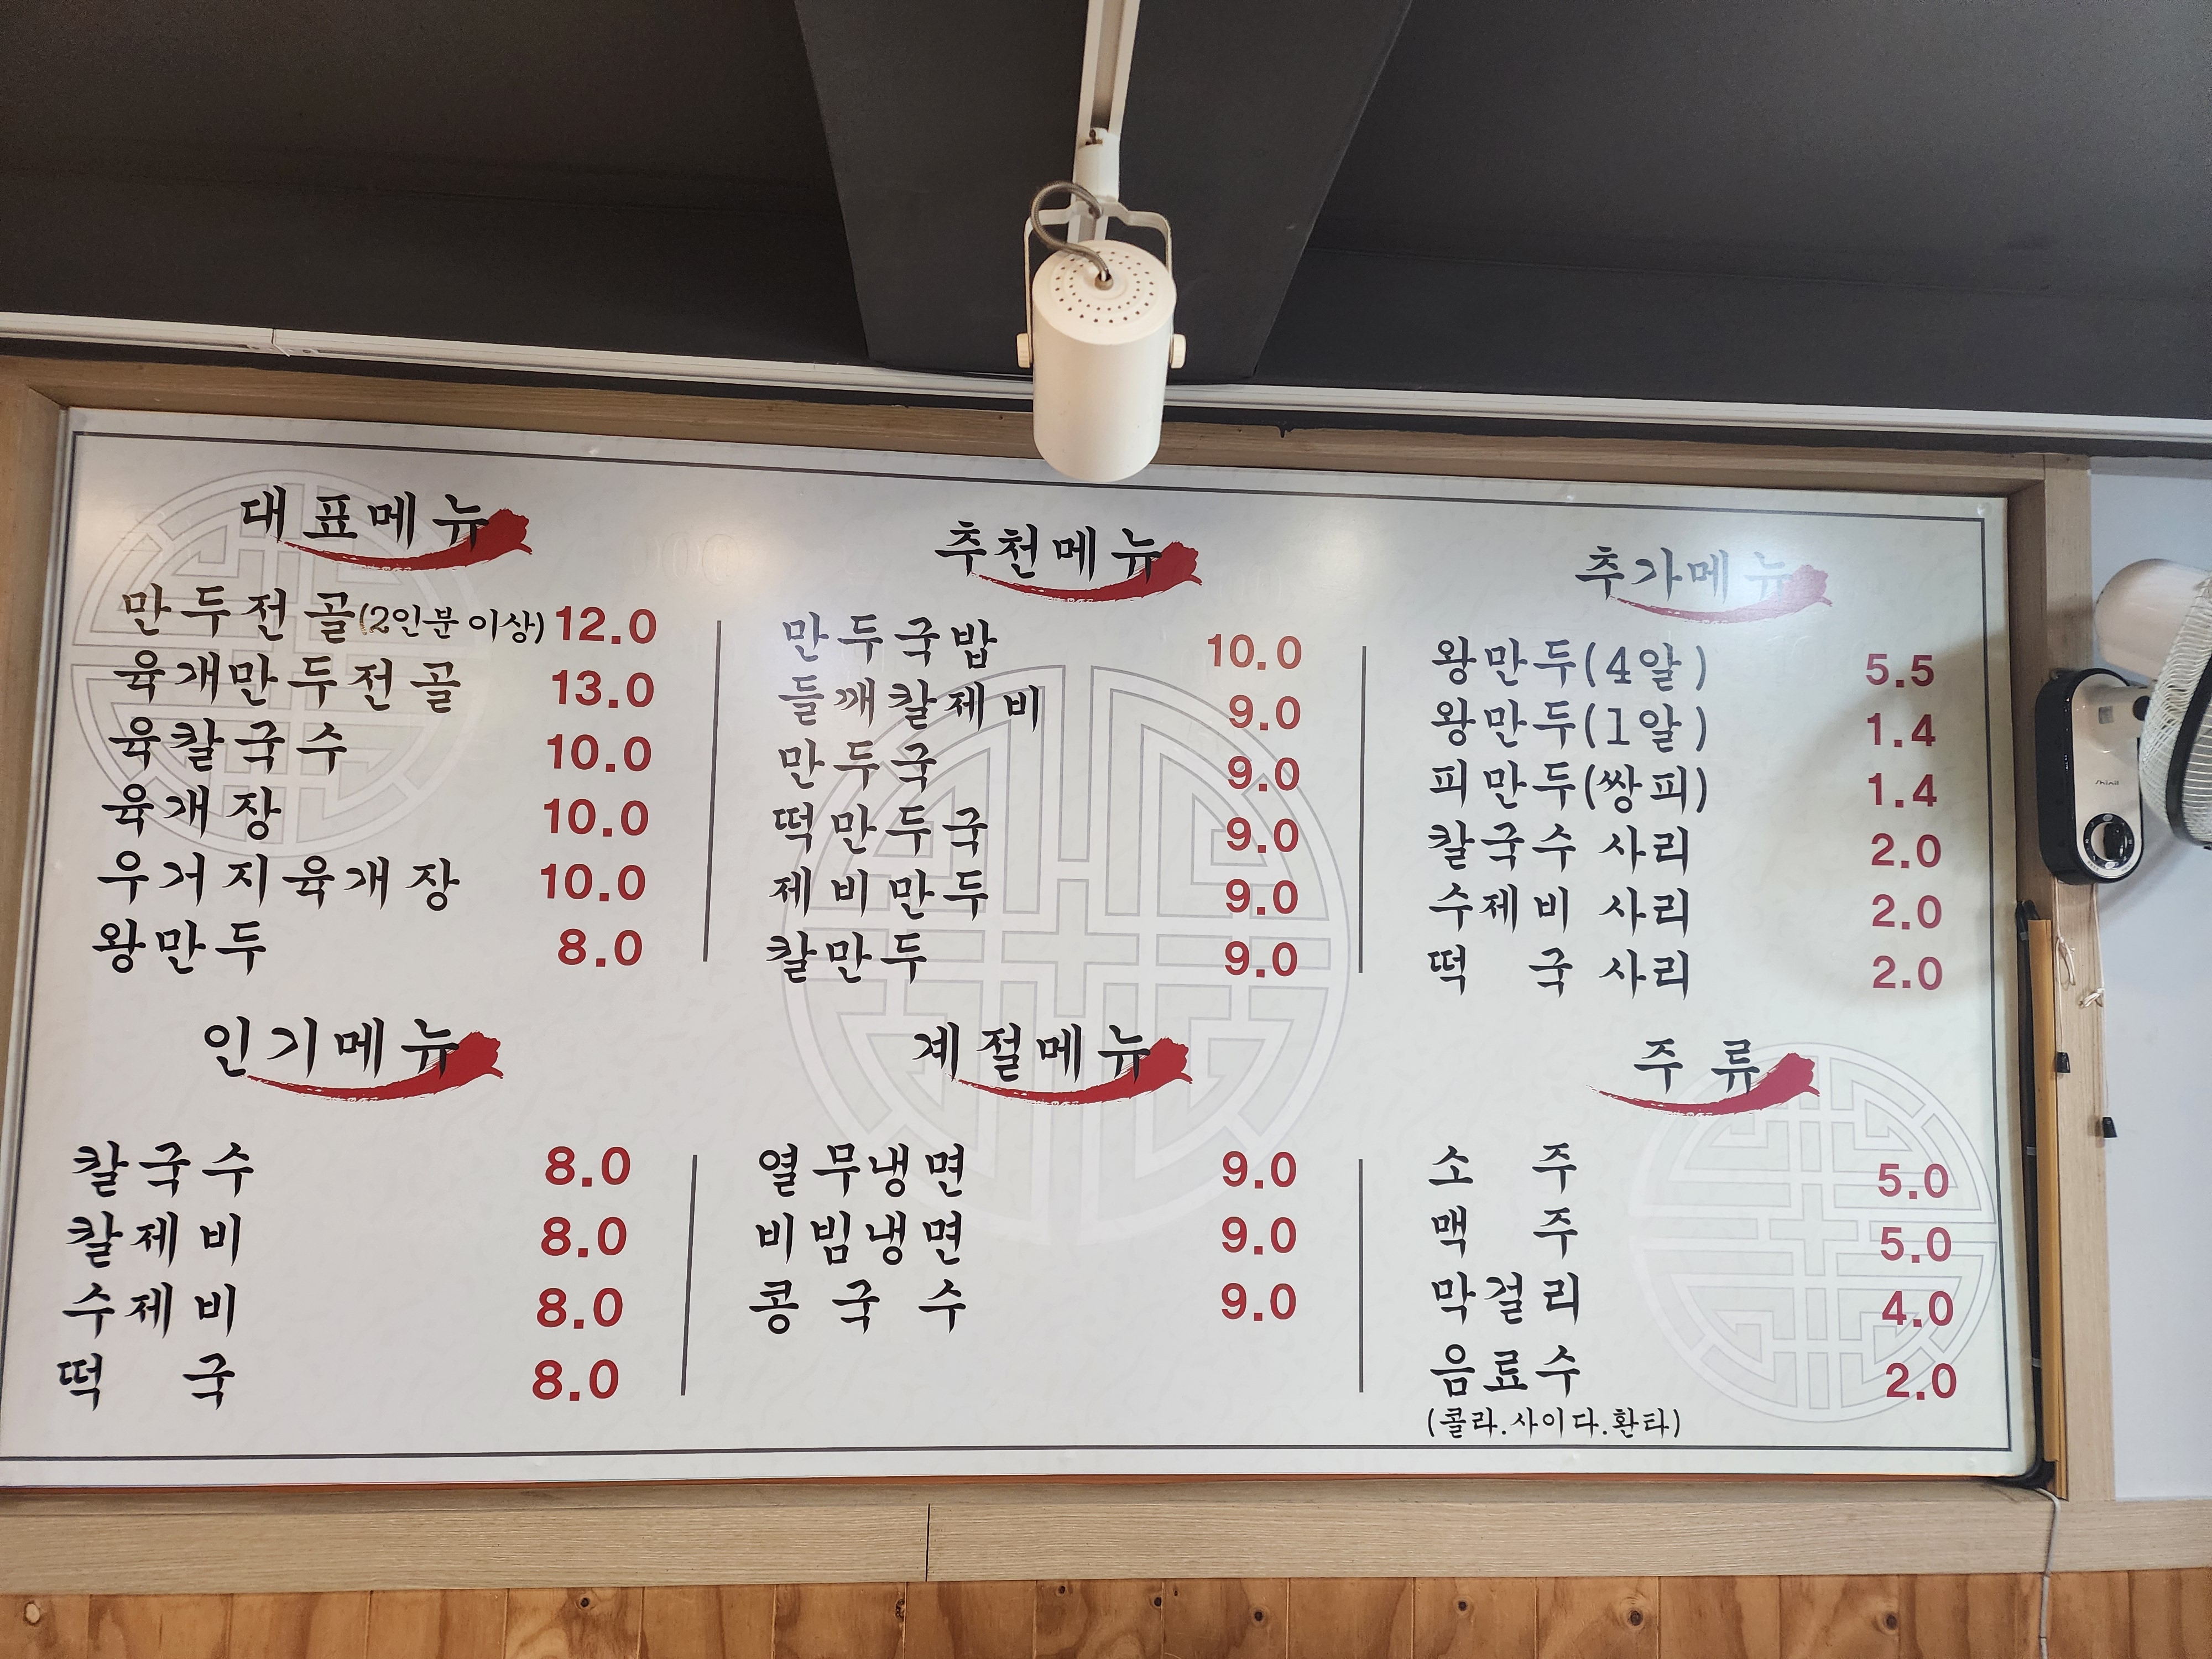 대표메뉴
만두전골(2인분 이상) 12.0
육개만두전골 13.0
육칼국수 10.0
육개장 10.0
우거지육개장 10.0
왕만두 8.0
추천메뉴
만두국밥 10.0
들깨칼제비 9.0
만두국 9.0
떡만두국 9.0
제비만두 9.0
칼만두 9.0
추가메뉴
왕만두(4알) 5.5
왕만두(1알) 1.4
피만두(쌍피) 1.4
칼국수 사리 2.0
수제비 사리 2.0
떡국 사리 2.0
인기메뉴
칼국수 8.0
칼제비 8.0
수제비 8.0
떡국 8.0
계절메뉴
열무냉면 9.0
비빔냉면 9.0
콩국수 9.0
주류
소주 5.0
맥주 5.0
막걸리 4.0
음료수 2.0
(콜라.사이다.환타)